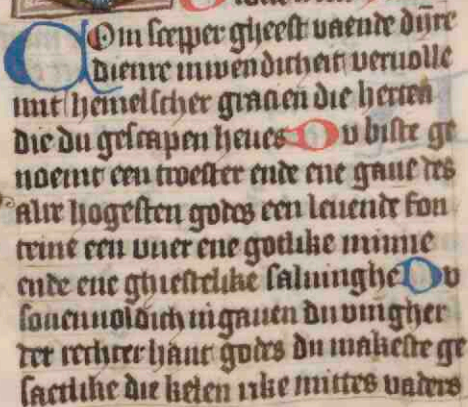 Com scepper gheest vaende dijre
dienre inwendicheit veruolle
mit hemelscher gracien die herten
die du gescapen heues Du biste ge
noemt een troester ende ene gaue des
alre hogesten godes een leuende fon
teine een vuer ene gotlike minne
ende ene ghiestelike saluinghe Du
souenuoldich in gauen du vingher
der rechter hant godes du makeste ge
saetlike die kelen rike mittes vaders